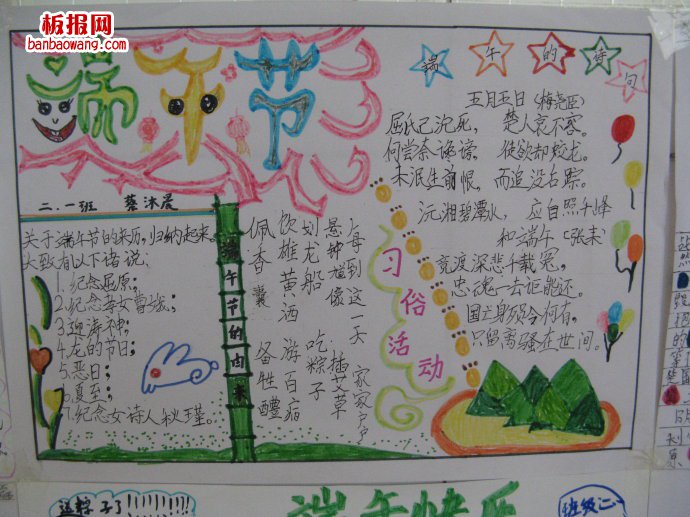 板报网
banbaowang.com
端午节
端午的诗句
五月五日（梅尧臣）
屈氏已沉死，楚人哀不容。
何尝奈谗谤，使欲却蛟龙。
未泯生前恨，而追没后踪。
沅湘碧潭水，应自照千峰
和端午（张耒）
竞渡深悲千载冤，
忠魂一去讵能还。
国亡身殒今何有，
只留离骚在世间。
二.一班 蔡沐晨
关于端午节的来历，归纳起来。
大致有以下诸说：
1.纪念屈原；
2.纪念孝女曹娥；
3.迎涛神；
4.龙的节日；
5.恶日；
6.夏至；
7.纪念女诗人秋瑾。
端午节的由来
习俗活动
每到这一天 家家户户
悬钟馗像 插艾草
划龙船 吃粽子
饮雄黄酒 游百病
佩香囊 备牲醴
送粽子了!!!!!!!!!
端午快乐
班级